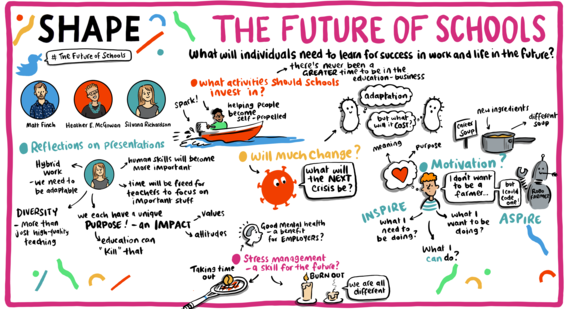 SHAPE
THE FUTURE OF SCHOOLS
# The Future of Schools
What will individuals need to learn for success in work and life in the future?
there's never been a
GREATER time to be in the
education-business
What activities should schools
invest in?
spark!
helping people
become
self-propelled
Matt Finch
Heather E. McGowan
Silvana Richardson
Reflections on Presentations
Hybrid
work
- we need to
be adaptable
human skills will become
more important
time will be freed for
teachers to focus on
important stuff
DIVERSITY
- More than
just high-quality
teaching
we each have a unique
PURPOSE! - an IMPACT
values
attitudes
education can
"Kill" that
adaptation
but what
will it COST?
Will much Change?
What will
the NEXT
Crisis be?
meaning
purpose
new ingredients
different
soup
Motivation?
I don't want
to be a
farmer...
but I could
code
one!
ROBO
FARMER
INSPIRE
What I
need to
be doing?
what I
want to be
doing?
ASPIRE
What I
can do?
Good Mental health
- a benefit
for EMPLOYERS?
Stress management
- a skill for the future?
Taking time
out
BURNOUT
we are all
different